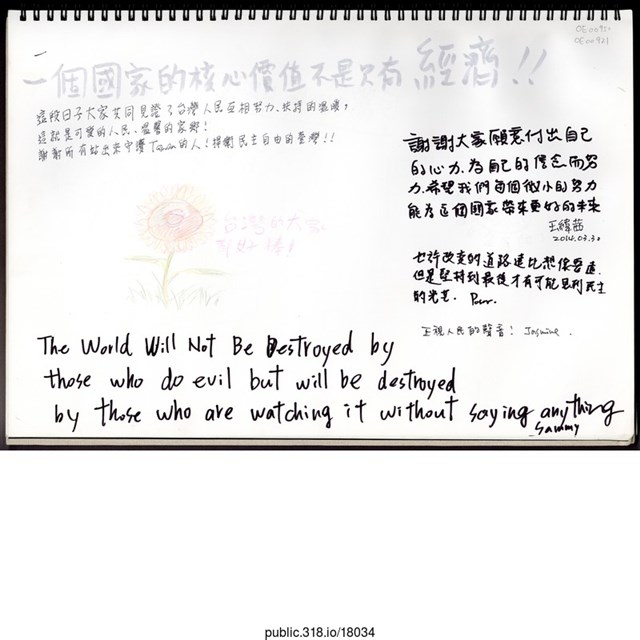 OE00950
OE00921
一個國家的核心價值不是只有經濟!!
這段日子大家共同見證了台灣人民互相努力、扶持的溫暖,
這就是可愛的人民、溫馨的家鄉!
謝謝所有站出來守護Taiwan的人!捍衛民主自由的臺灣!!
謝謝大家願意付出自己
的心力,為自己的信念而努
力,希望我們每個微小的努力
能為這個國家帶來更好的未來
2014.03.30
台灣的大家
都好棒!
也許改變的道路遠比想像要遠
但是堅持到最後才有可能見到民主
的光芒。
正視人民的聲音! Jasmine.
The World Will Not Be Destroyed by
those who do evil but will be destroyed
by those who are watching it without saying anything
Sammy
public.318.io/18034